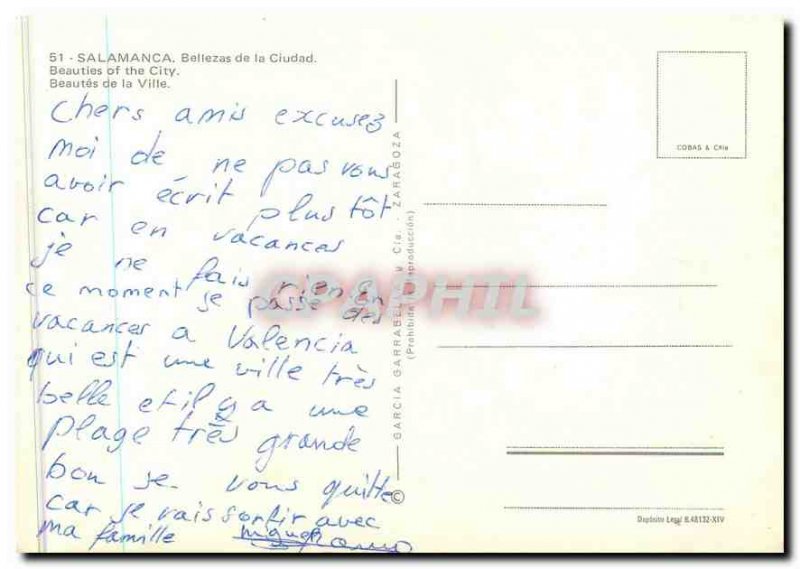 51 - SALAMANCA. Bellezas de la Ciudad.
Beauties of the City.
Beautés de la Ville.
Chers amis excusez
moi de ne pas vous
avoir écrit plus tôt
car en vacances
je ne fais rien en
ce moment je passe des
vacances a Valencia
qui est une ville très
belle et il y a une
plage très grande
bon je vous quitte
car je vais sortir avec
ma famille
GARCIA GARRABELLA y Cia. - ZARAGOZA
(Prohibida la reproducción)
©
COBAS & CAle
Depósito Legal B.48132-XIV
CPAPHIL